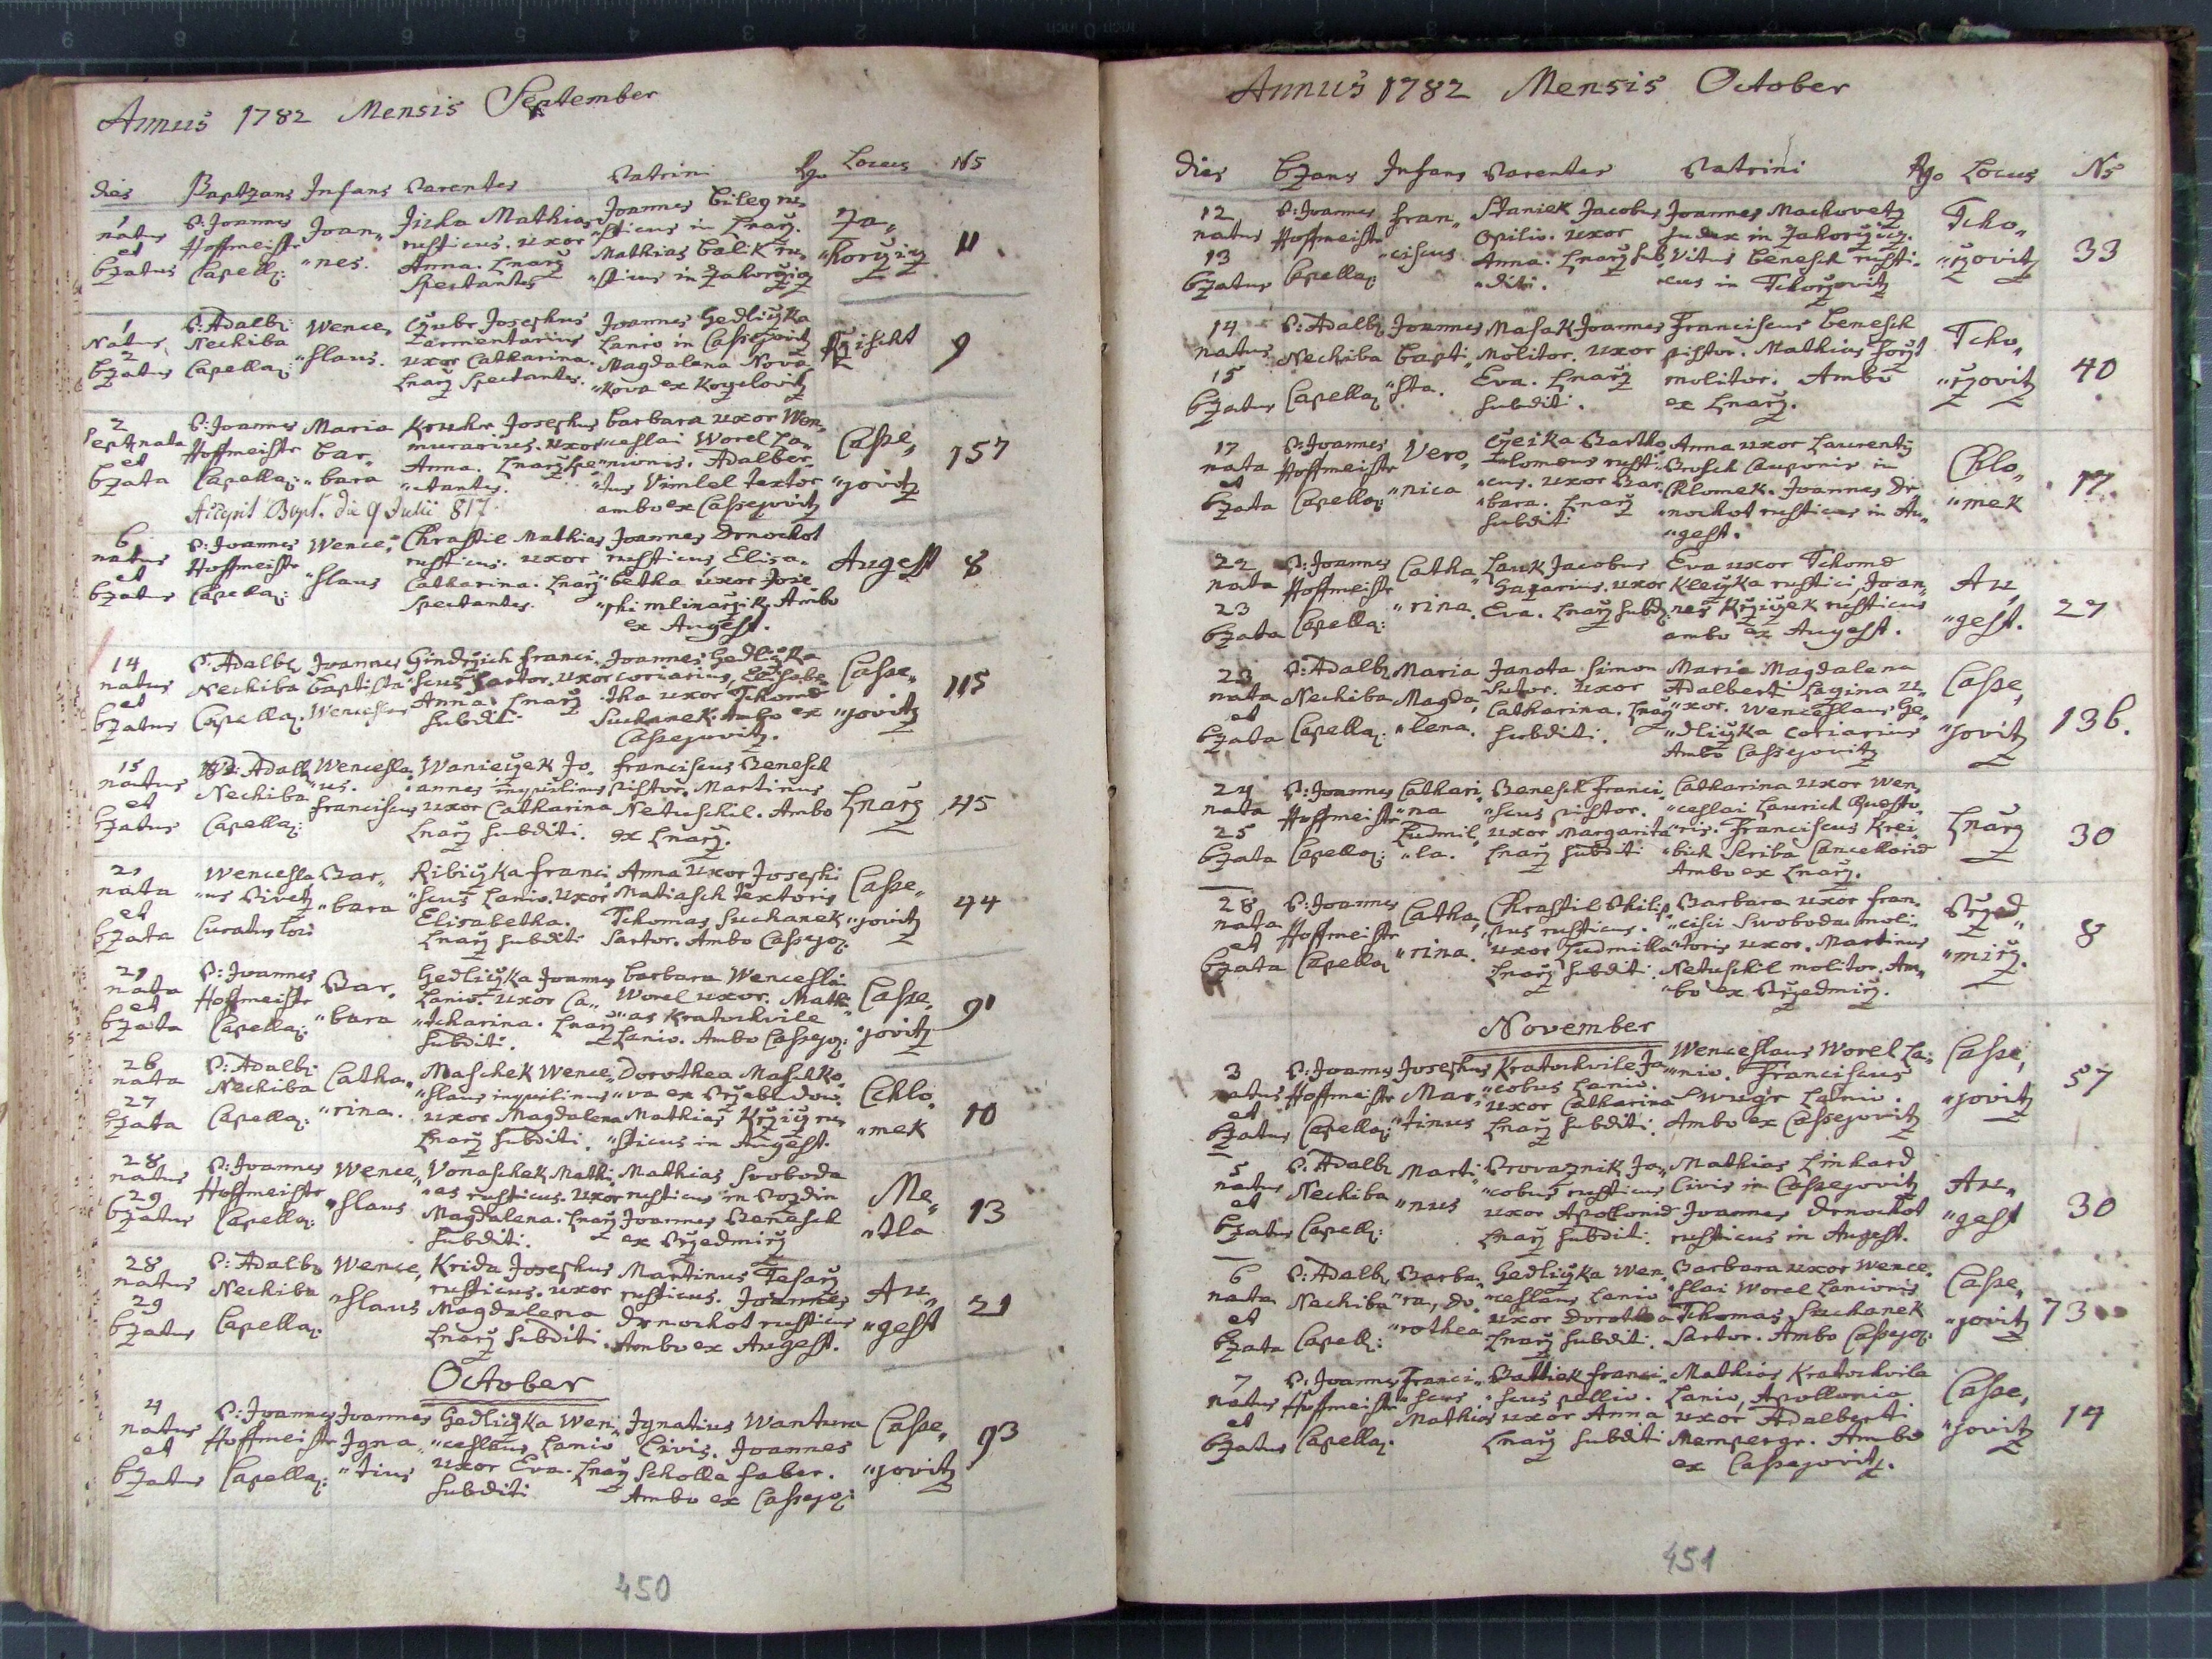 Annus 1782 Mensis September
dies Baptzans Infans Parentes Patrini Rgo Locus Ns
1 natus et bzatus
P: Joannes Hoffmeistr Capell:
Joan„ „nes.
Jicha Mathias rusticus. uxor Anna. Lnarz Spectantes
Joannes Bileg ru„ „sticus in Lnarz. Mathias Balik ru„ „sticus in Zahorzicz
Za„ „horzicz
11
1 Natus 2 bzatus
P: Adalb: Nechiba Capella:
Wence„ „slaus.
Czube Josephus armentarius uxor Catharina. Lnarz Spectantes.
Joannes Gedliczka Lanio in Cassejovitz Magdalena Nova„ „kova ex Kozclovitz
9
2 Sept. nata et bzata
P: Joannes Hoffmeistr Capella:
Maria Bar„ „bara
Josephus murarius. uxor Anna. Lnarz spe„ „ctantes.
Barbara uxor Wen„ „ceslai Worel La„ „nionis. Adalber„ „tus Vimlel textor ambo ex Cassejovitz
Casse„ „jovitz
157
Accepit Bapt. die 9 Julii 817.
6 natus et bzatus
P: Joannes Hoffmeistr Capella:
Wence„ „slaus
Chrastil Mathias rusticus. uxor Catharina. Lnarz Spectantes.
Joannes Drnochot rusticus, Elisa„ „betha uxor Jose„ „phi mlinarzik. Ambo ex Augest.
Augest
8
14 natus et bzatus
P: Adalb: Nechiba Capella:
Joannes Baptista Wenceslaus
Gindrzich Franci„ „scus Sartor. uxor Anna. Lnarz Subditi.
Joannes Gedliczka coriarius, Elisabe„ „tha uxor Thomae Suchanek. Ambo ex Cassejovitz.
Casse„ „jovitz
115
15 natus et bzatus
P: Adalb: Nechiba Capella:
Wencesla„ „us. Franciscus
Wanieczek Jo„ „annes inquilinus uxor Catharina Lnarz Subditi.
Franciscus Benesch Pistor. Martinus Netuschil. Ambo ex Lnarz.
Lnarz
45
21 nata et bzata
Wencesla„ „us Pivetz Curatus loci
Bar„ „bara
Ribiczka Franci„ „scus Lanio. uxor Elisabetha. Lnarz Subditi
Anna uxor Josephi Matiasch textoris Thomas Suchanek Sartor. Ambo Cassejo:
Casse„ „jovitz
44
21 nata et bzata
P: Joannes Hoffmeistr Capella:
Bar„ „bara
Gedliczka Joannes Lanio. uxor Ca„ „tharina. Lnarz Subditi.
Barbara Wenceslai Worel uxor. Mathi„ „as Kratochvile Lanio. Ambo Cassejo:
Casse„ „jovitz
91
26 nata 27 bzata
P: Adalb: Nechiba Capella:
Catha„ „rina.
Maschek Wence„ „slaus inquilinus uxor Magdalena Lnarz Subditi.
Dorothea Maschko„ „va ex Przebudow. Mathias Krzicz ru„ „sticus in Augest.
Chlo„ „mek
10
28 natus 29 bzatus
P: Joannes Hoffmeistr Capella:
Wence„ „slaus
Vonaschek Mathi„ „as rusticus. uxor Magdalena. Lnarz Subditi.
Mathias Svoboda rusticus in Pozdin Joannes Benesch ex Przedmirz
Me„ „tla
13
28 natus 29 bzatus
P: Adalb: Nechiba Capella:
Wence„ „slaus
Krida Josephus rusticus. uxor Magdalena Lnarz Subditi.
Martinus Tesarz rusticus. Joannes Drnochot rusticus Ambo ex Augest.
Au„ „gest
21
October
4 natus et bzatus
P: Joannes Hoffmeistr Capella:
Joannes Igna„ „tius
Gedliczka Wen„ „ceslaus Lanio uxor Eva. Lnarz Subditi
Ignatius Wantura Civis. Joannes Scholla faber. Ambo ex Cassejo:
Casse„ „jovitz
93
450
Annus 1782 Mensis October
Dies bzans Infans Parentes Patrini Rgo Locus Ns
12 natus 13 bzatus
P: Joannes Hoffmeistr Capella:
Fran„ „ciscus
Staniek Jacobus Opilio. uxor Anna. Lnarz sub„ „diti.
Joannes Machovetz Judex in Zahorzicz. Vitus Benesch rusti„ „cus in Tchorzovitz
Tcho„ „rzovitz
33
14 natus 15 bzatus
P: Adalb: Nechiba Capella:
Joannes Bapti„ „sta.
Masak Joannes Molitor. uxor Eva. Lnarz subditi.
Franciscus Benesch pistor. Mathias Forzt molitor. Ambo ex Lnarz.
Tcho„ „rzovitz
40
17 nata et bzata
P: Joannes Hoffmeistr Capella:
Vero„ „nica
Czeika Bartho„ „lomeus rusti„ „cus. uxor Bar„ „bara. Lnarz Subditi
Anna uxor Laurentz Brosch Cauponis in Chlomek. Joannes Dr„ „nochot rusticus in Au„ „gest.
Chlo„ „mek
17
22 nata 23 bzata
P: Joannes Hoffmeistr Capella:
Catha„ „rina.
Lauk Jacobus uxor Eva. Lnarz Subd:
Eva uxor Thomae Kleczka rustici, Joan„ „nes Krzizek rusticus ambo ex Augest.
Au„ „gest.
27
23 nata et bzata
P: Adalb: Nechiba Capella:
Maria Magda„ „lena.
Janota Simon Sutor. uxor Catharina. Lnarz Subditi.
Maria Magdalena Adalberti Lagina u„ „xor. Wenceslaus Ge„ „dliczka coriarius Ambo Cassejovitz
Casse„ „jovitz
136.
24 nata 25 bzata
P: Joannes Hoffmeistr Capella:
Cathari„ „na Ludmil„ „la.
Benesch Franci„ „scus pistor. uxor Margarita Lnarz Subditi
Catharina uxor Wen„ „ceslai Laurich Questo„ „ris. Franciscus Krei„ „bich Scriba Cancellariae Ambo ex Lnarz.
Lnarz
30
28 nata et bzata
P: Joannes Hoffmeistr Capella
Catha„ „rina.
Chrastil Philip„ „pus rusticus. uxor Ludmilla Lnarz Subditi.
Barbara uxor Fran„ „cisci Swoboda moli„ „toris uxor. Martinus Netuschil molitor. Am„ „bo ex Przedmirz.
Przed„ „mirz.
8
November
3 natus et bzatus
P: Joannes Hoffmeistr Capella:
Josephus Mar„ „tinus
Kratochvile Ja„ „cobus Lanio. uxor Catharina Lnarz Subditi.
Wenceslaus Worel La„ „nio. Franciscus Lanio. Ambo ex Cassejovitz
Casse„ „jovitz
57
5 natus et bzatus
P: Adalb: Nechiba Capell:
Marti„ „nus
Provaznik Ja„ „cobus rusticus uxor Apollonia Lnarz Subditi.
Mathias Linhard Civis in Cassejovitz Joannes Drnochot rusticus in Augest.
Au„ „gest
30
6 nata et bzata
P: Adalb: Nechiba Capell:
Barba„ „ra, Do„ „rothea
Gedliczka Wen„ „ceslaus Lanio uxor Dorothea Lnarz Subditi.
Barbara uxor Wence„ „slai Worel Lanionis Thomas Suchanek Sartor. Ambo Cassejo:
Casse„ „jovitz
73
7 natus et bzatus
P: Joannes Hoffmeistr Capella:
Franci„ „scus Mathias
Battiek Franci„ „scus pellio. uxor Anna Lnarz Subditi
Mathias Kratochvila Lanio, Apollonia uxor Adalberti Mempergr. Ambo ex Cassejovitz.
Casse„ „jovitz
14
451